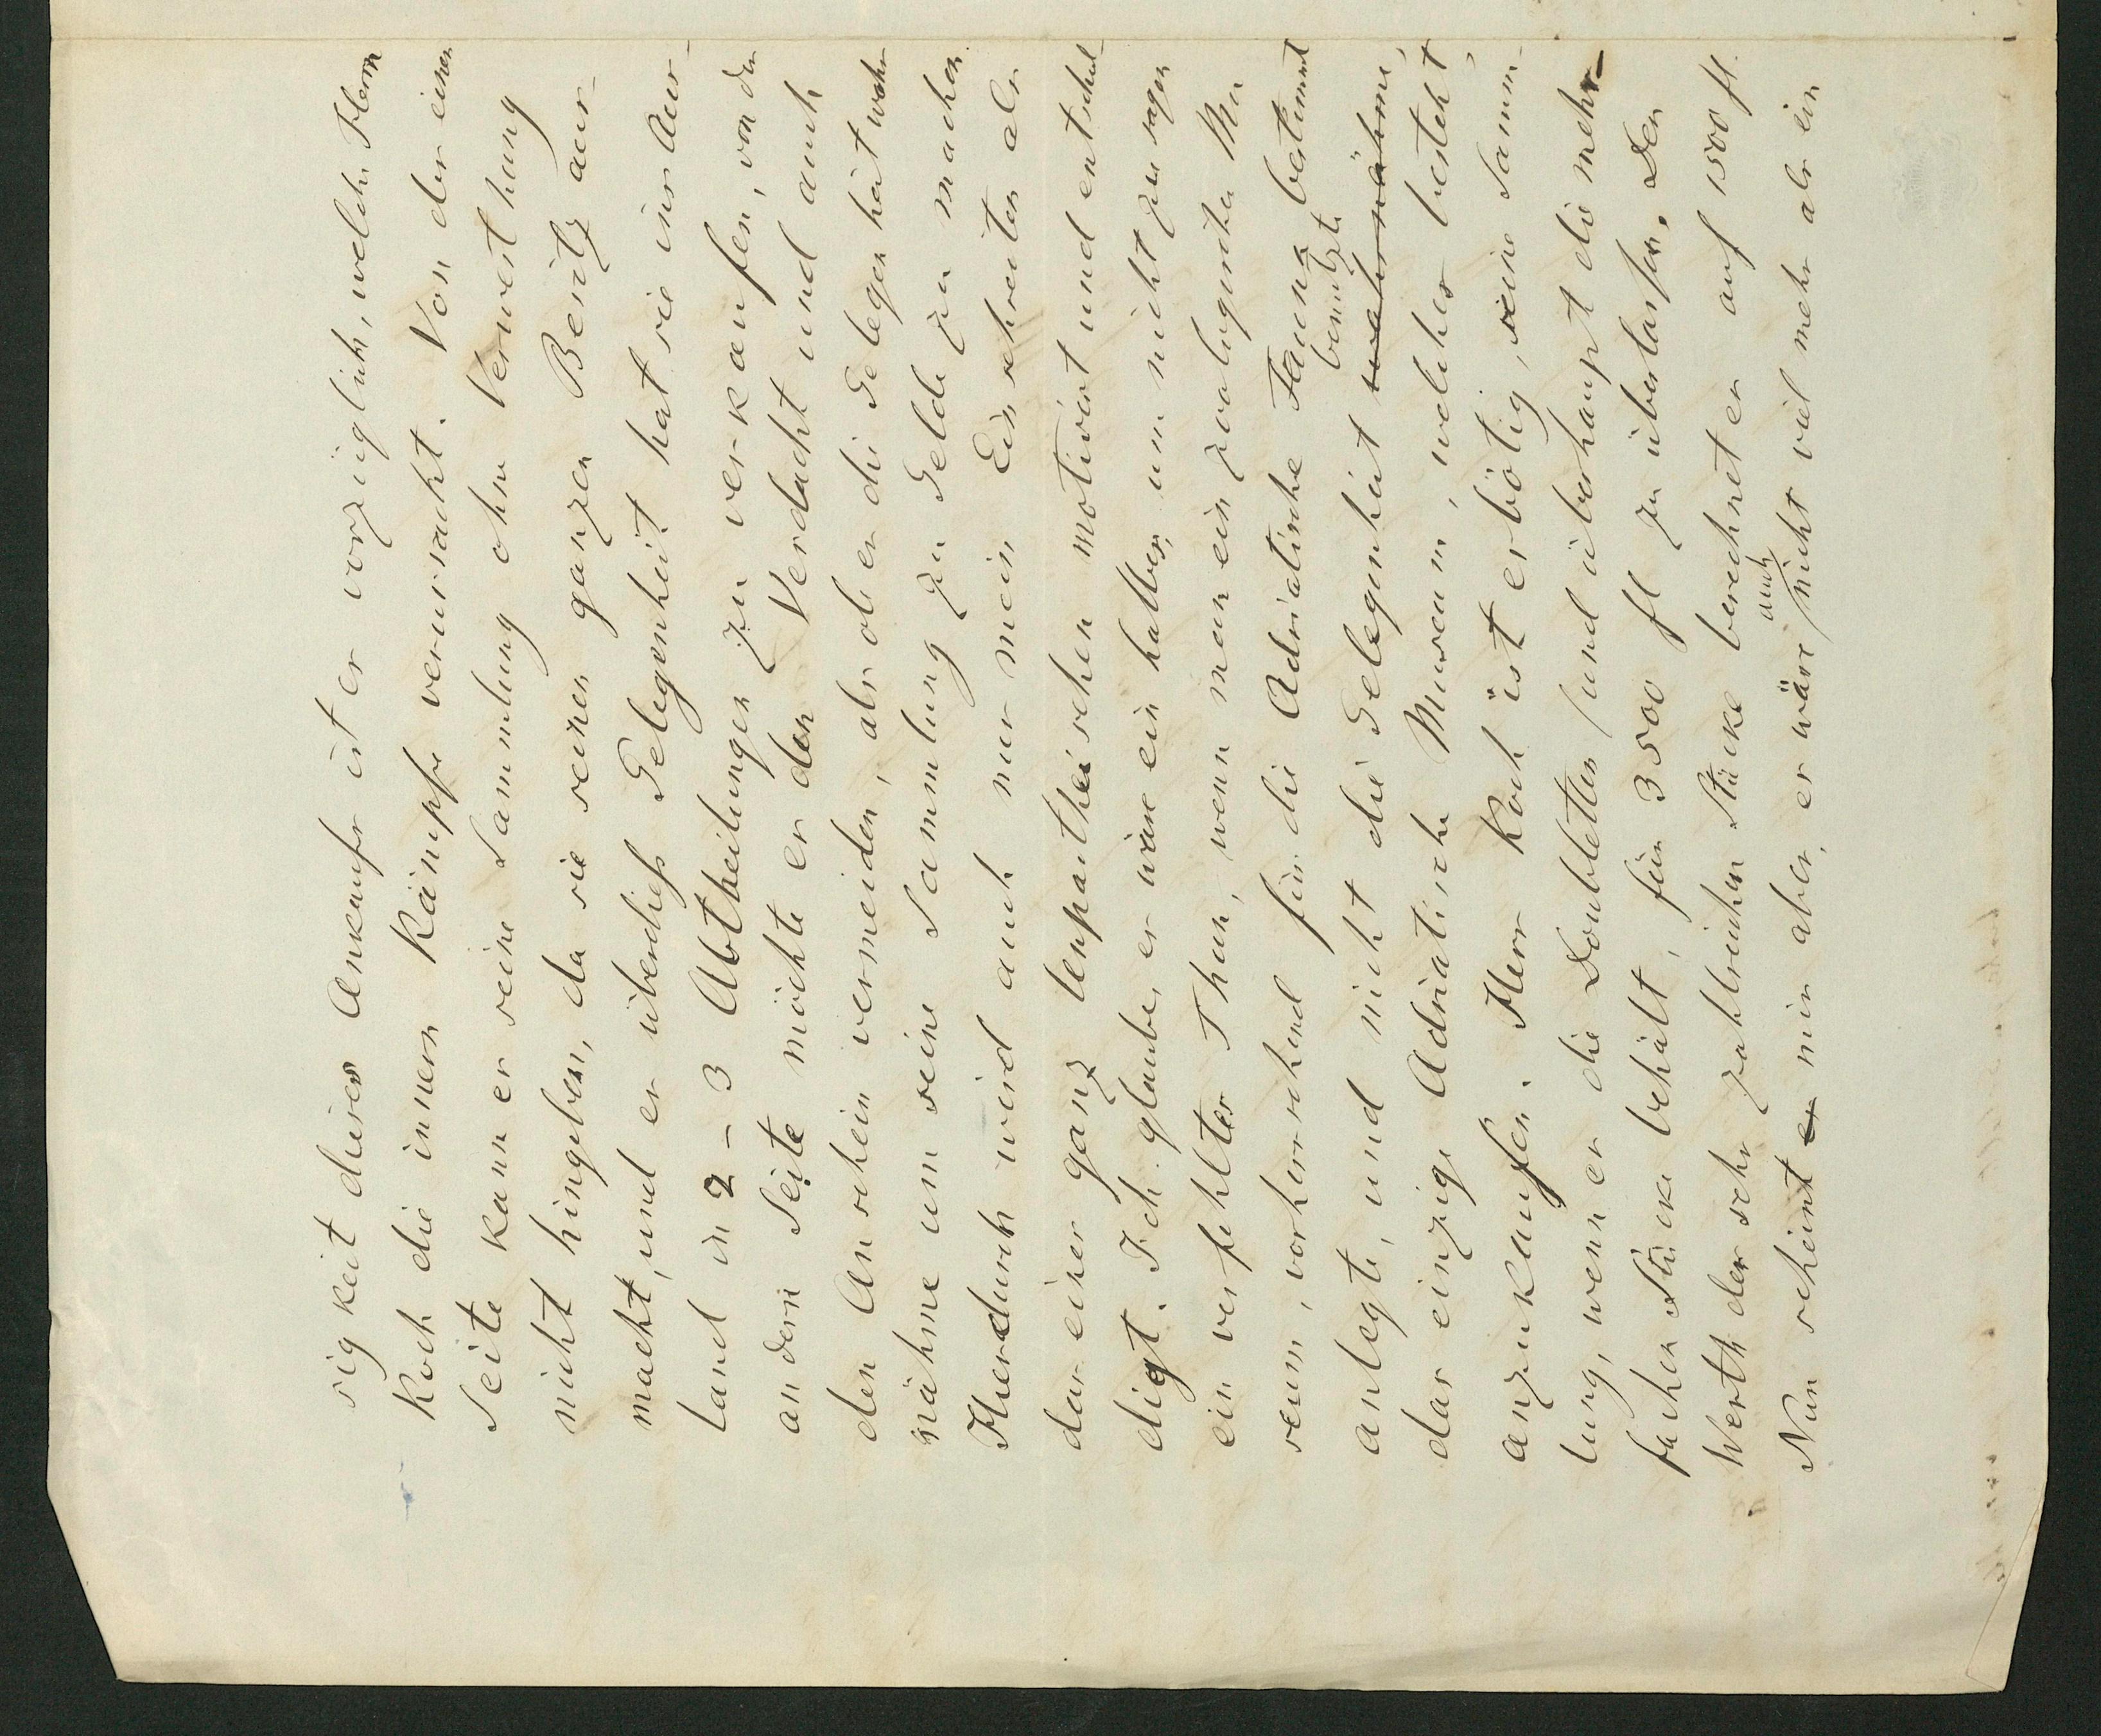 sigkeit dieses Ankaufs ist er vorzüglich, welche Herrn
Koch die innern Kämpfe verursacht. Von der einen
Seite kann er seine Sammlung ohne Verwerthung
nicht hingeben, da sie seinen ganzen Besitz aus-
macht, und er überdieß Gelegenheit hat sie ins Aus-
land in 2 – 3 Abtheilungen zu verkaufen, von der
andern Seite möchte er den Verdacht und auch
den Anschein vermeiden, als ob er die Gelegenheit wahr
nähme um seine Sammlung zu Gelde zu machen.
Hierdurch wird auch nur mein Einschreiten als
das einer ganz unpartheiischen motivirt und entschul-
digt. Ich glaube, es wäre ein halber, um nicht zu sagen
ein verfehlter Thun, wenn man ein zoologisches Mu
seum, vorherrschend für die Adriatische Fauna bestimmt
anlegte, und nicht die Gelegenheit wahrnähme, benutzte
das einzige Adriatische Museum, welches besteht,
anzukaufen. Herr Koch ist erbötig, seine Samm-
lung, wenn er die Doubletten /und überhaupt die mehr-
fachen Stücke behält, für 3500 fl zu überlassen. Den
Werth der sehr zahlreichen Stücke berechnet er auf 1500 fl.
Nun scheint er mir aber, es wäre auch /nicht viel mehr als ein